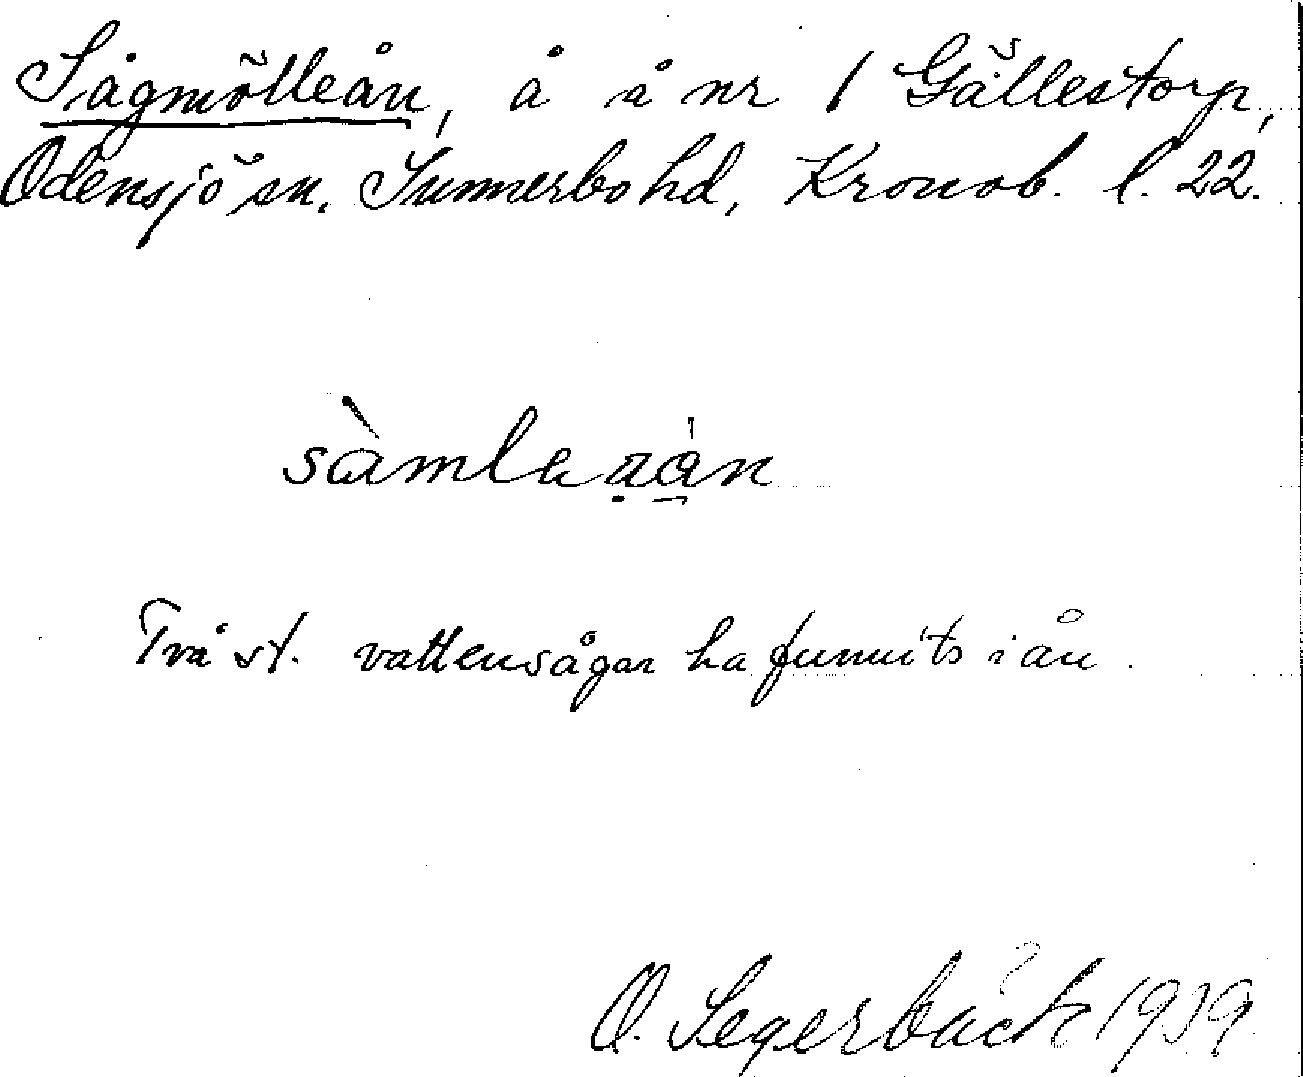 Sågmölleån, å å nr 1 Gällestorp,
Odensjö sn. Sunnerbo hd, Kronob. l. 22.
Två st. vattensågar ha funnits i ån.
O. Segerbäck 1939